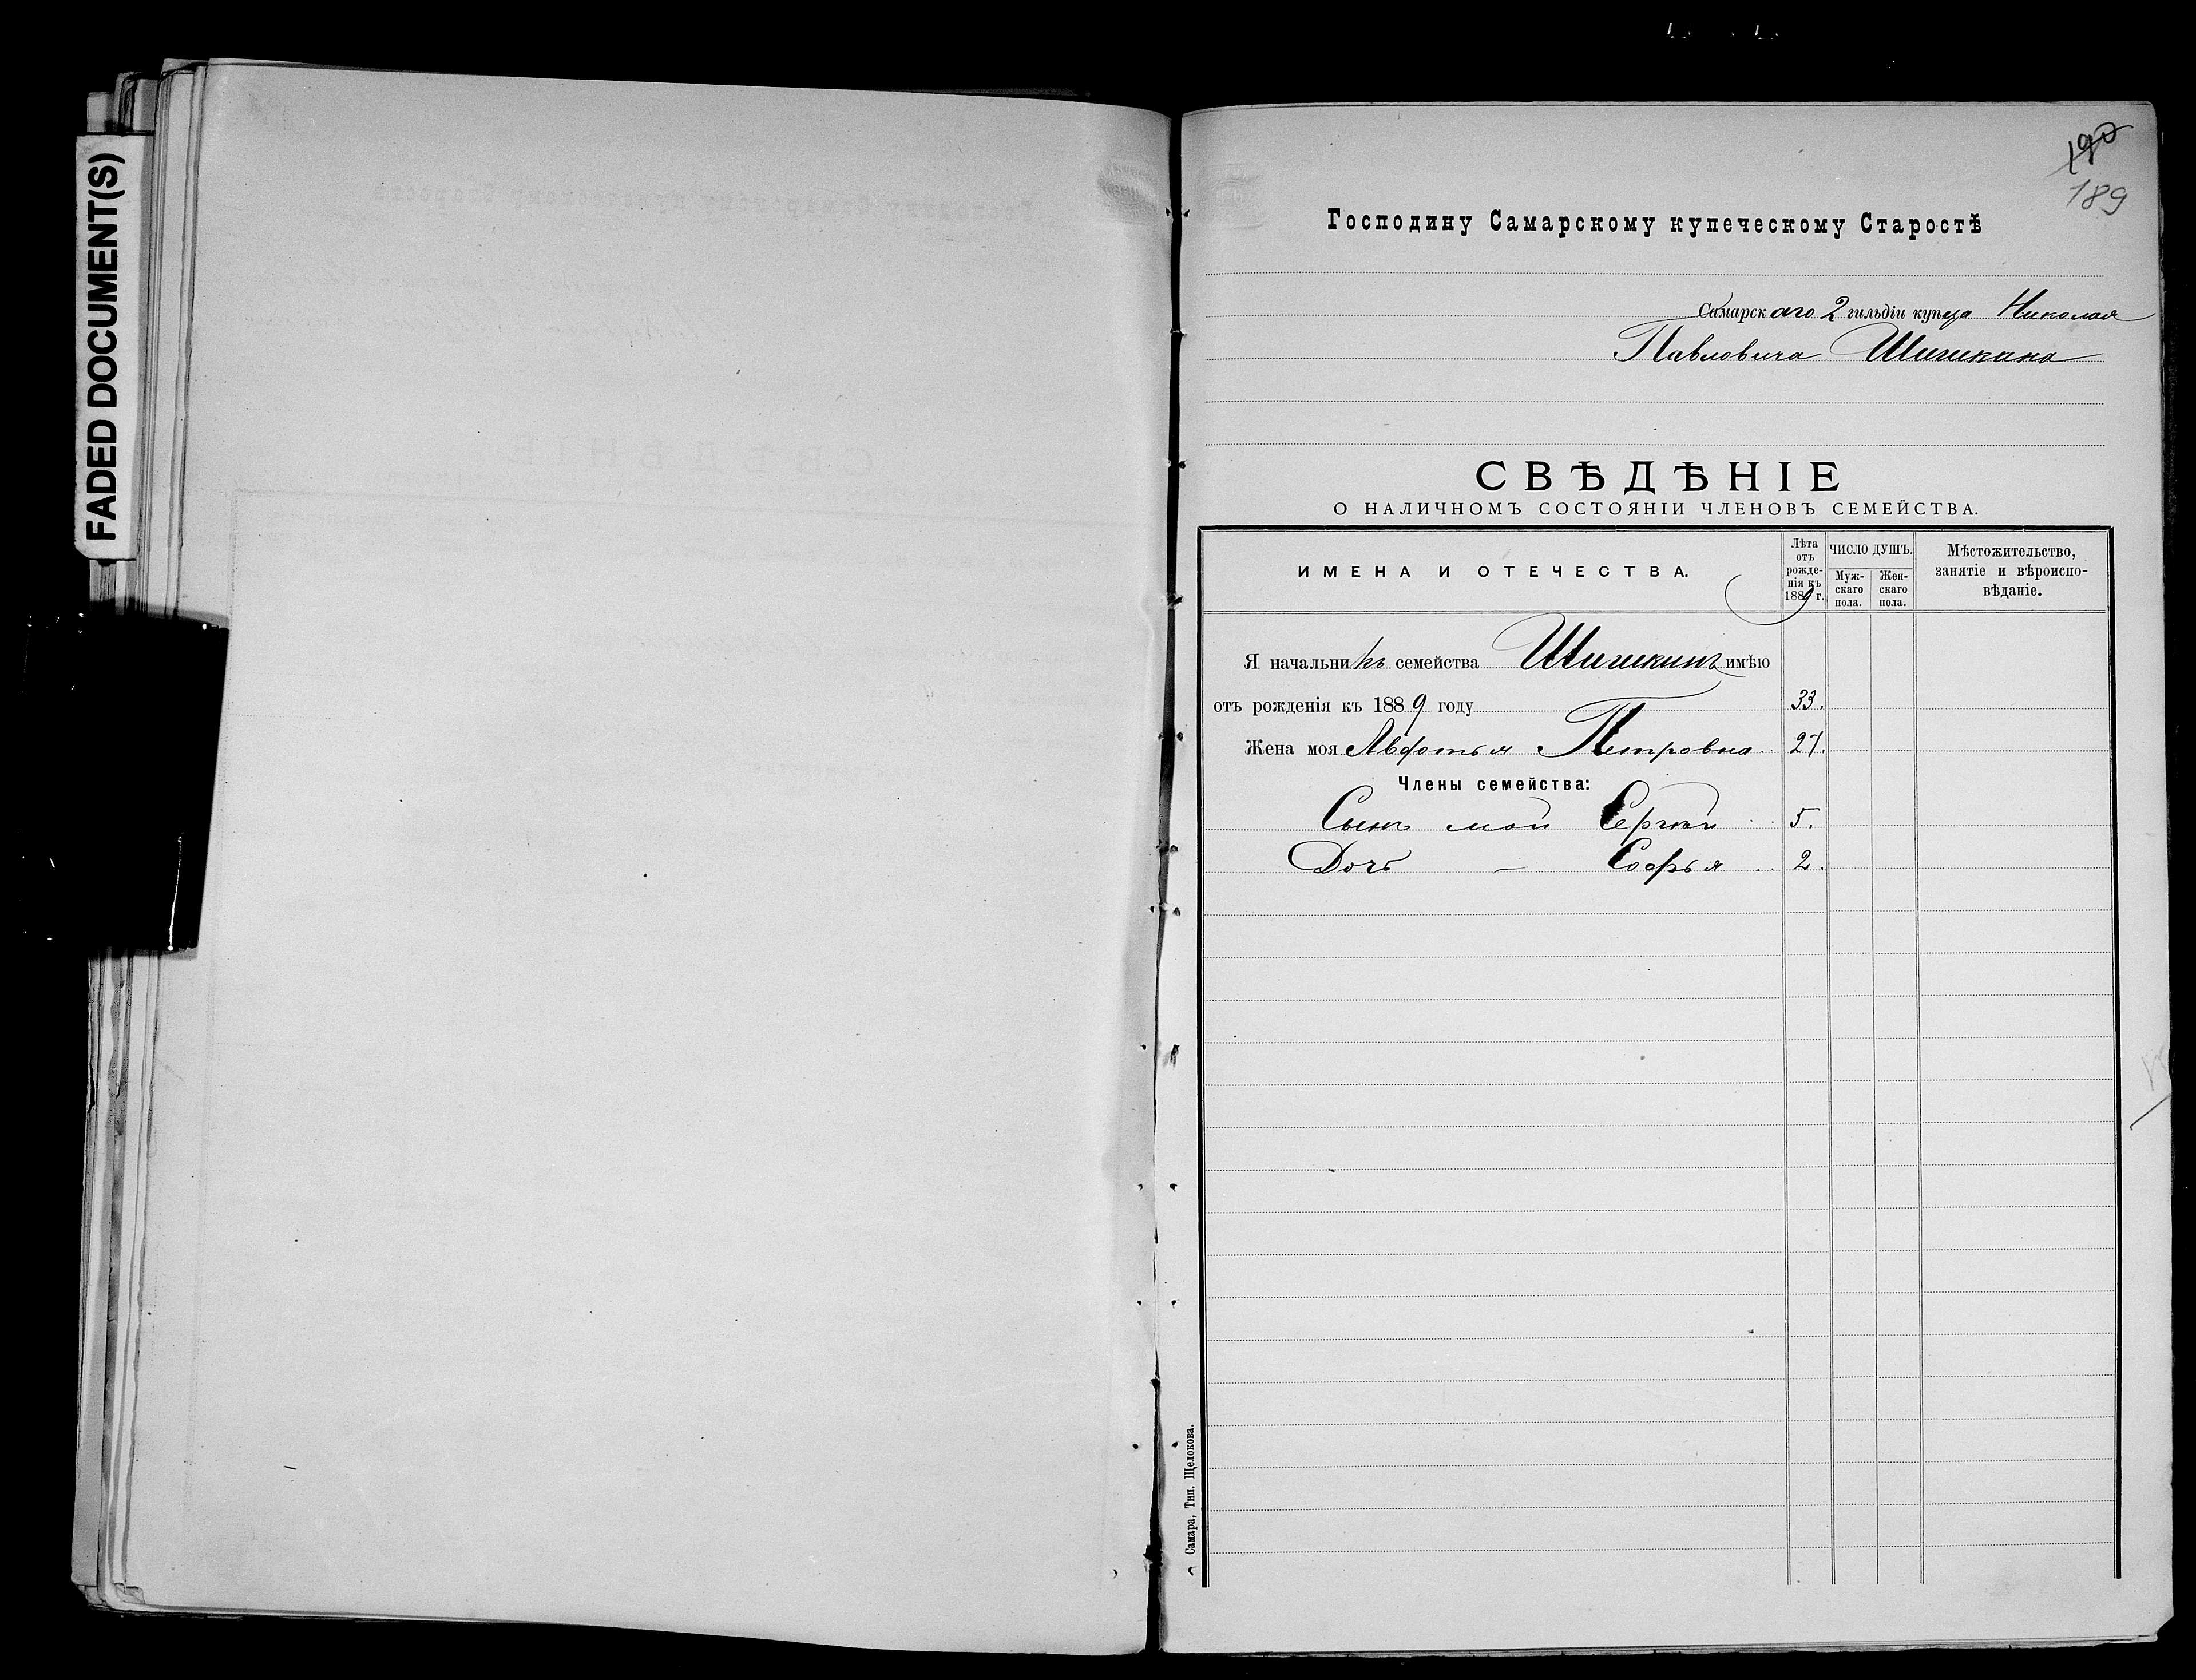 FADED DOCUMENT(S)
190
189
Господину Самарскому купеческому Старостѣ
Самарскаго 2 гильдіи купца Николая
Павловича Шишкина
СВѢДѢНІЕ
О НАЛИЧНОМЪ СОСТОЯНІИ ЧЛЕНОВЪ СЕМЕЙСТВА.
ИМЕНА И ОТЕЧЕСТВА.
Лѣта отъ рожденія къ 1889 г.
ЧИСЛО ДУШЪ.
Мужскаго пола.
Женскаго пола.
Мѣстожительство, занятіе и вѣроисповѣданіе.
Я начальникъ семейства Шишкинъ имѣю
отъ рожденія къ 1889 году 33.
Жена моя Авдотья Петровна 27.
Члены семейства:
Сынъ мой Сергѣй 5.
Дочь — Софья 2.
Самара, Тип. Щелокова.